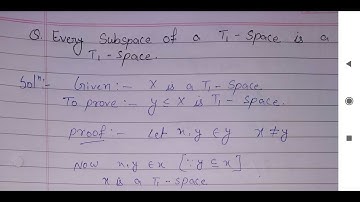 Q. Every Subspace of a T₁-Space is a
T₁-Space.
Solⁿ:- Given:- X is a T₁-Space
To prove:- y ⊆ X is T₁-Space.
Proof:- Let x,y ∈ y x ≠ y
Now x,y ∈ x [∵ y ⊆ x]
x is a T₁-space